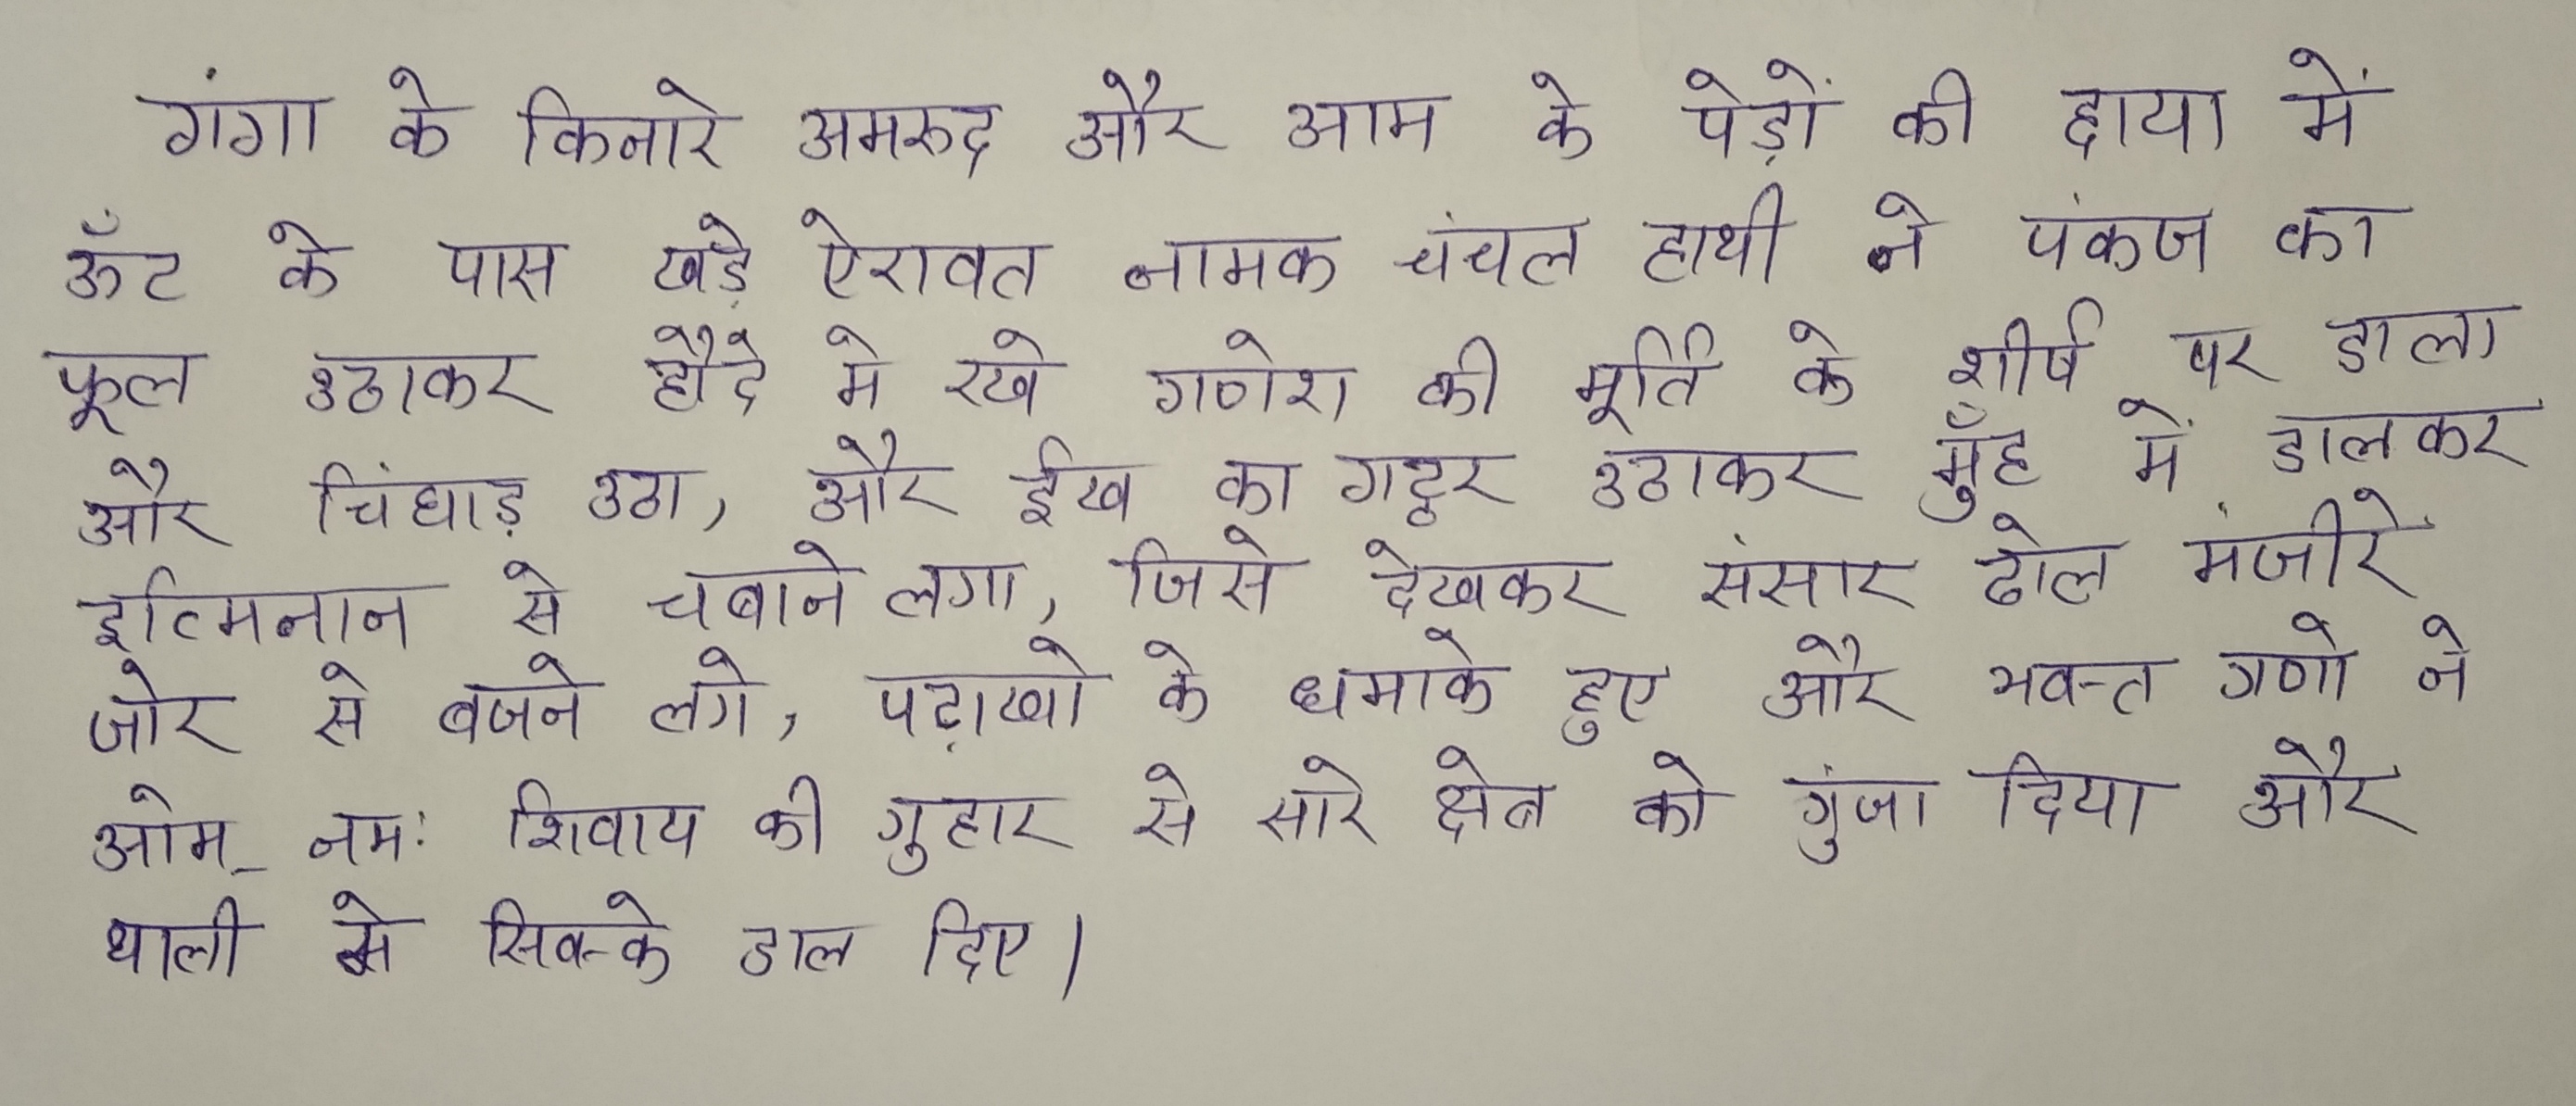 गंगा के किनारे अमरुद और आम के पेड़ों की छाया में
ऊँट के पास खड़े ऐरावत नामक चंचल हाथी ने पंकज का
फूल उठाकर हौदे मे रखे गणेश की मूर्ति के शीर्ष पर डाला
और चिंघाड़ उठा, और ईख का गट्ठर उठाकर मुँह में डालकर
इत्मिनान से चबाने लगा, जिसे देखकर संसार ढोल मंजीरे
जोर से बजने लगे, पटाखो के धमाके हुए और भक्त गणो ने
ओम् नमः शिवाय की गुहार से सारे क्षेत्र को गुंजा दिया और
थाली मे सिक्के डाल दिए।